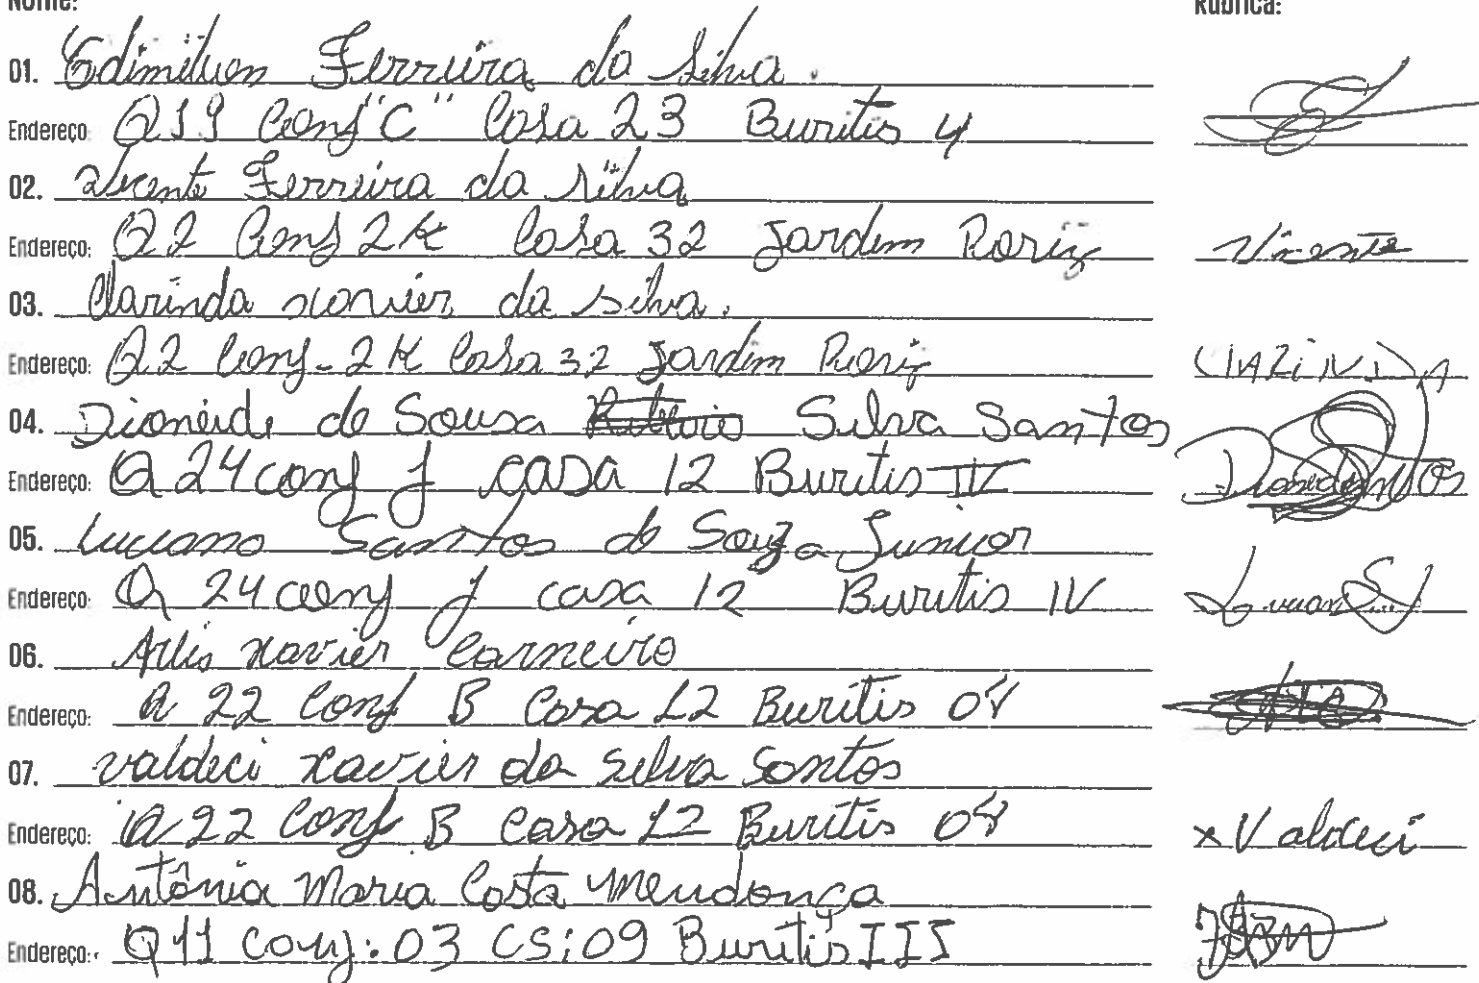 Nome: Rubrica:
01. Edimilson Ferreira da Silva.
Endereço: Q19 Conj "C" Casa 23 Buritis 4
02. Vicente Ferreira da Silva
Endereço: Q2 Conj 2K Casa 32 Jardim Roriz Vicente
03. Clarinda xavier da silva.
Endereço: Q2 Conj-2K Casa 32 Jardim Roriz
04. Dioneide de Sousa Silva Santos
Endereço: Q 24 conj J casa 12 Buritis IV
05. Luciano Santos de Souza Junior
Endereço: Q 24 conj J casa 12 Buritis IV
06. xavier Carneiro
Endereço: Q 22 Conj B Casa 12 Buritis 04
07. valdeci xavier da Silva Santos
Endereço: Q 22 Conj B Casa 12 Buritis 04 x Valdeci
08. Antônia Maria Costa Mendonça
Endereço: Q 11 conj: 03 CS: 09 Buritis III